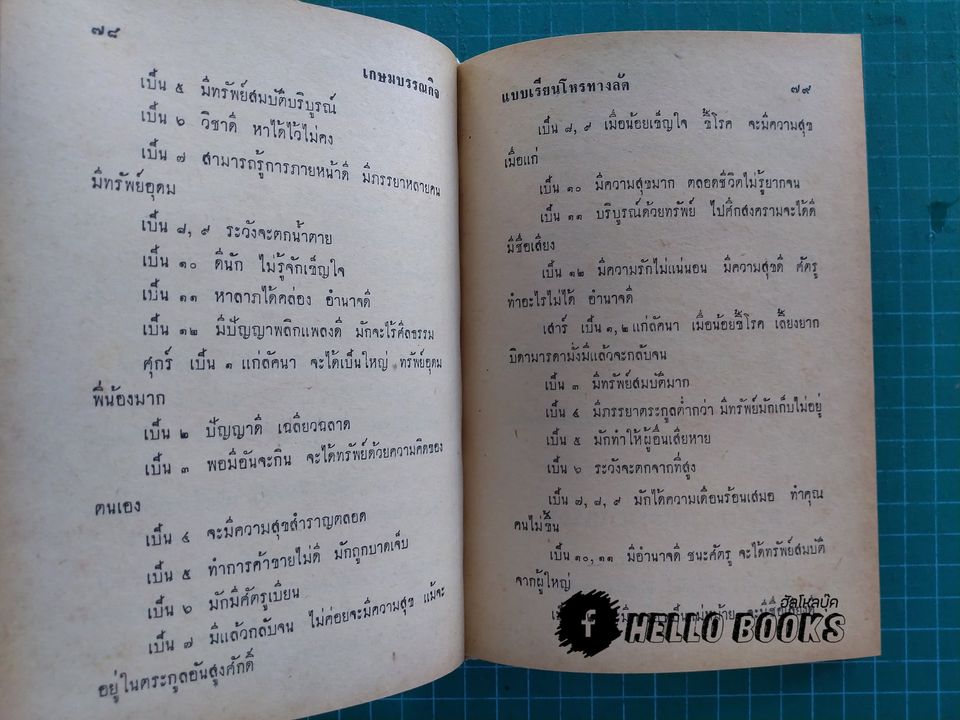 ๗๘
เกษมบรรณกิจ
เป็น ๕ มีทรัพย์สมบัติบริบูรณ์
เป็น ๖ วิชาดี หาได้ไว้ไม่คง
เป็น ๗ สามารถรู้การภายหน้าดี มีภรรยาหลายคน
มีทรัพย์อุดม
เป็น ๘, ๙ ระวังจะตกน้ำตาย
เป็น ๑๐ ดีนัก ไม่รู้จักเข็ญใจ
เป็น ๑๑ หาลาภได้คล่อง อำนาจดี
เป็น ๑๒ มีปัญญาพลิกแพลงดี มักจะไร้ศีลธรรม
ศุกร์ เป็น ๑ แก่ลัคนา จะได้เป็นใหญ่ ทรัพย์อุดม
พี่น้องมาก
เป็น ๒ ปัญญาดี เฉลียวฉลาด
เป็น ๓ พอมีอันจะกิน จะได้ทรัพย์ด้วยความคิดของ
ตนเอง
เป็น ๔ จะมีความสุขสำราญตลอด
เป็น ๕ ทำการค้าขายไม่ดี มักถูกบาดเจ็บ
เป็น ๖ มักมีศัตรูเบียน
เป็น ๗ มีแล้วกลับจน ไม่ค่อยจะมีความสุข แม้จะ
อยู่ในตระกูลอันสูงศักดิ์
แบบเรียนโหรทางลัด
๗๙
เป็น ๘, ๙ เมื่อน้อยเข็ญใจ ขี้โรค จะมีความสุข
เมื่อแก่
เป็น ๑๐ มีความสุขมาก ตลอดชีวิตไม่รู้ยากจน
เป็น ๑๑ บริบูรณ์ด้วยทรัพย์ ไปศึกสงครามจะได้ดี
มีชื่อเสียง
เป็น ๑๒ มีความรักไม่แน่นอน มีความสุขดี ศัตรู
ทำอะไรไม่ได้ อำนาจดี
เสาร์ เป็น ๑, ๒ แก่ลัคนา เมื่อน้อยขี้โรค เลี้ยงยาก
บิดามารดามั่งมีแล้วจะกลับจน
เป็น ๓ มีทรัพย์สมบัติมาก
เป็น ๔ มีภรรยาตระกูลต่ำกว่า มีทรัพย์มักเก็บไม่อยู่
เป็น ๕ มักทำให้ผู้อื่นเสียหาย
เป็น ๖ ระวังจะตกจากที่สูง
เป็น ๗, ๘, ๙ มักได้ความเดือนร้อนเสมอ ทำคุณ
คนไม่ขึ้น
เป็น ๑๐, ๑๑ มีอำนาจดี ชนะศัตรู จะได้ทรัพย์สมบัติ
จากผู้ใหญ่
ฮัลโหลบุ๊ค
f HELLO BOOKS